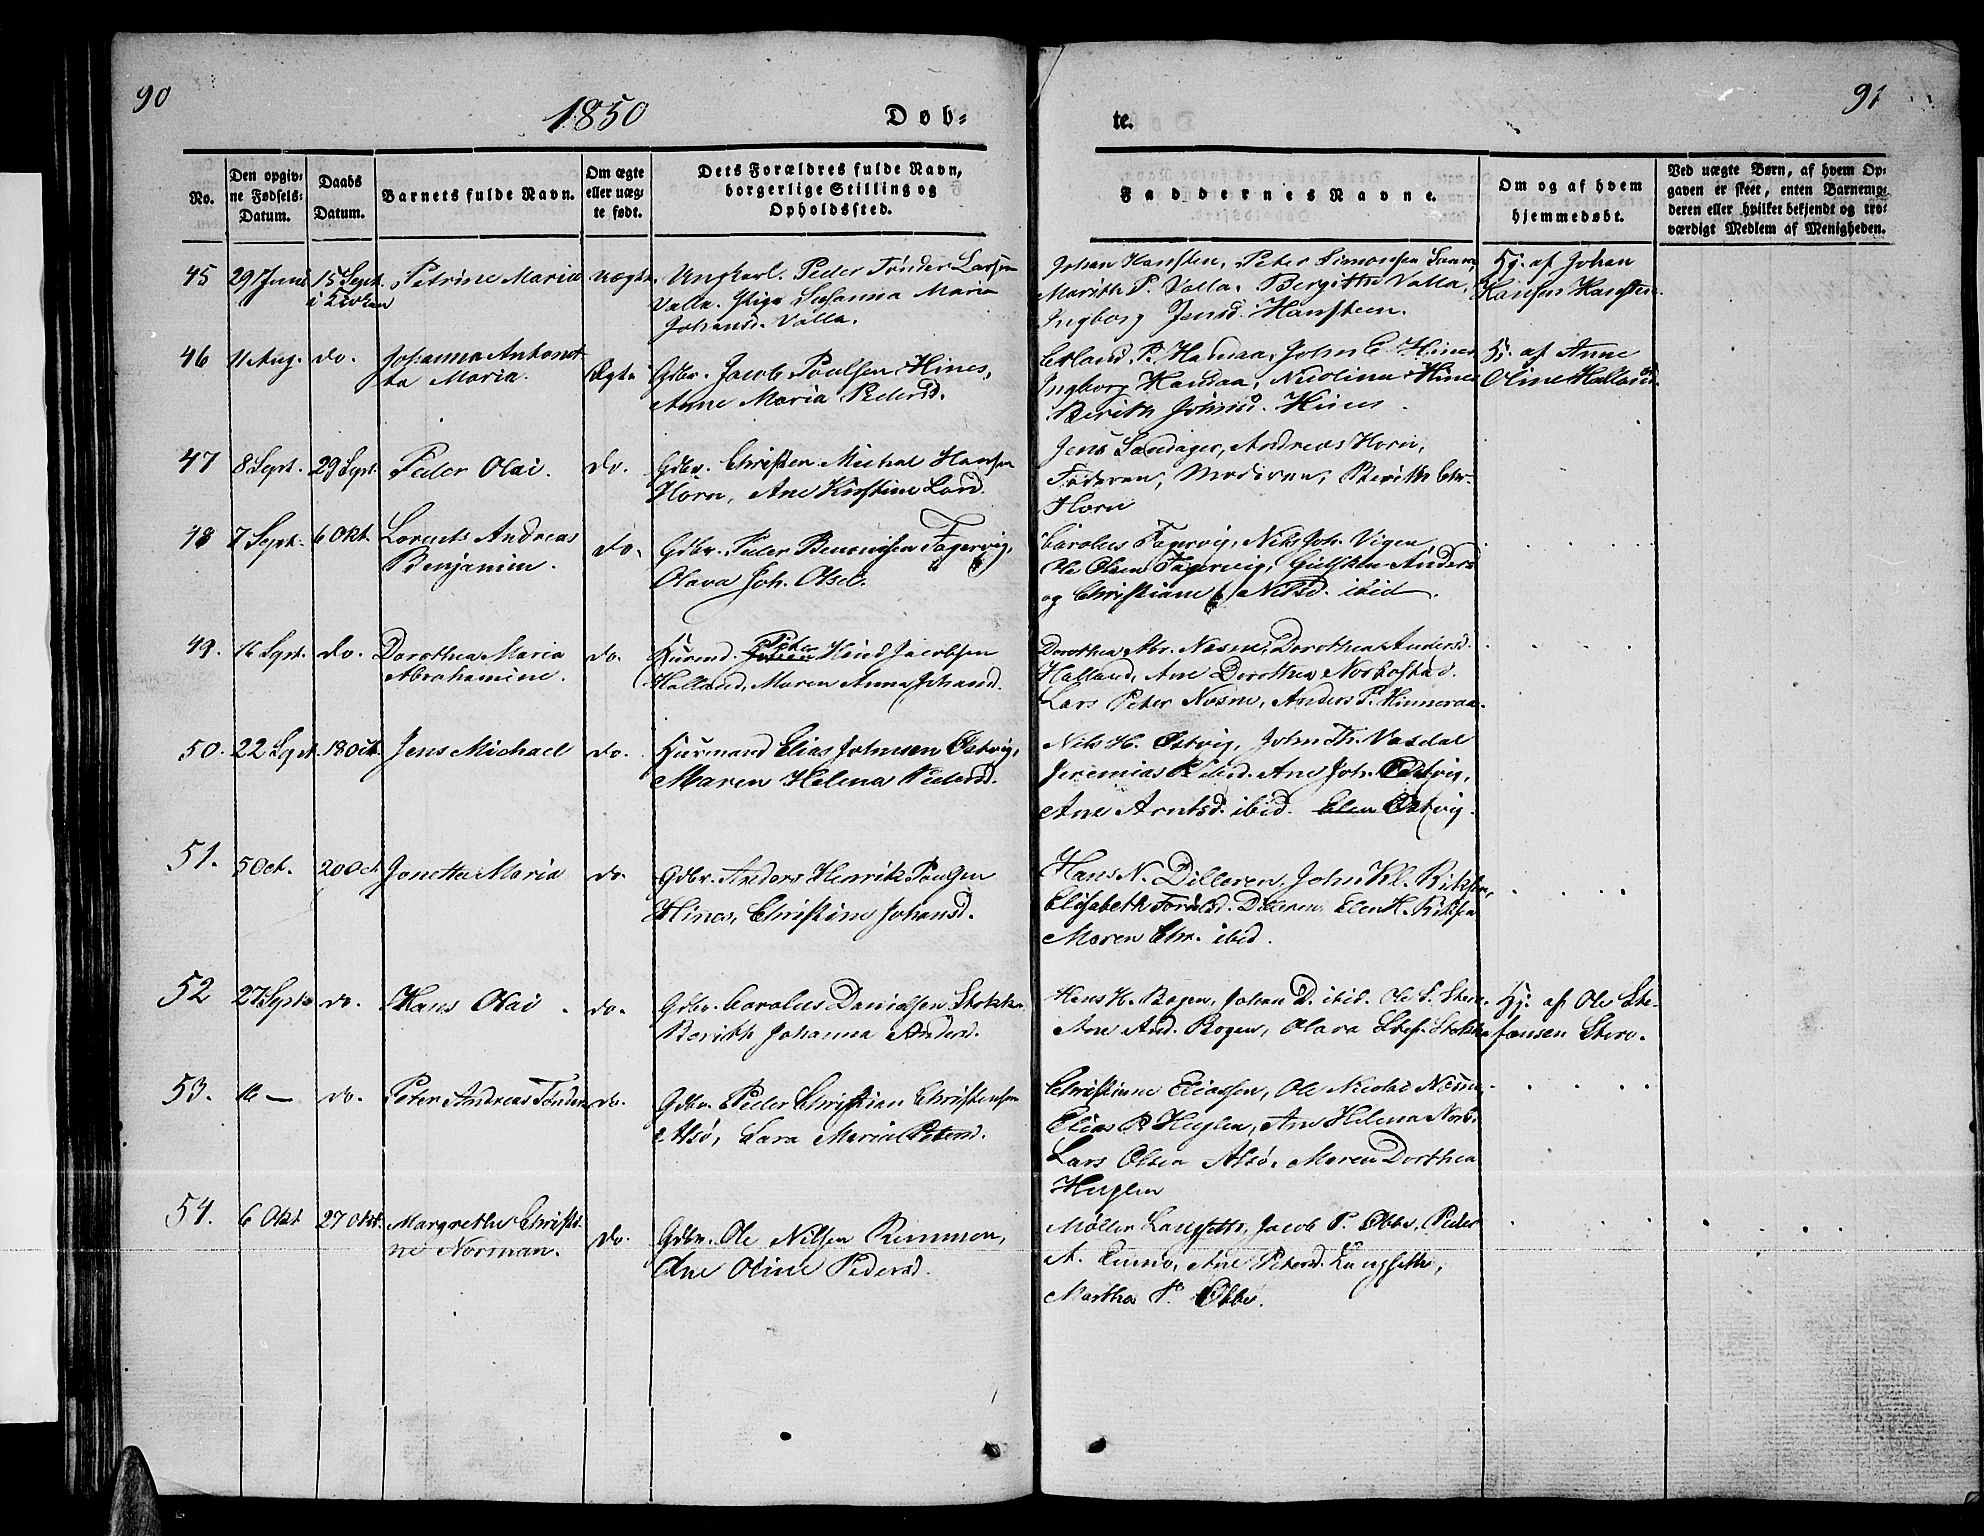 90
1850
Døb-
No.
Den opgiv-
ne Fødsels-
Datum.
Daabs
Datum.
Barnets fulde Navn.
Om ægte
eller uæg-
te født.
Dets Forældres fulde Navn,
borgerlige Stilling og
Opholdssted.
45 29 Juni 15 Sept. Petrine Maria uægte Ungkarl. Peder Tønder Larsen
i Kirken Valla. Pige Susanna Maria
Johansd. Valla.
46 11 Aug. do. Johanna Antonet- Ægte Gdbr. Jacob Poulsen Hines,
ta Maria. Anne Maria Pedersd.
47 8 Sept. 29 Sept. Peder Olai. do. Gdbr. Christen Michal Hansen
Horn, Ane Kirstine Lard.
48 7 Sept. 6 Okt. Lorents Andreas do. Gdbr. Peder Benonisen Fagervig,
Benjamin. Olava Joh. Olsd.
49. 16 Sept. do. Dorothea Maria do. Huusmd. Peter Hind Jacobsen
Abrahamine. Halland, Maren Anna Johansd.
50. 22 Sept. 18 Oct. Jens Michael do. Huusmand Elias Johnsen Østvig,
Maren Helena Pedersd.
51. 5 Oct. 20 Oct Jonetta Maria do. Gdbr. Anders Henrik
Hines, Christine Johansd.
52 27 Sept. do. Hans Olai. do. Gdbr. Carolus Danielsen Stokka
Berith Johanna Andersd.
53. 16 — do. Peter Andreas Tønder do. Gdbr. Peder Christian Christensen
Alsø, Lara Maria Petersd.
54. 6 Okt 27 Okt. Margrethe Christi- do. Gdbr. Ole Nilsen Remmen,
ne Norman. Ane Oline Pedersd.
91
te.
Faddernes Navne.
Om og af hvem
hjemmedøbt.
Ved uægte Børn, af hvem Op-
gaven er skeet, enten Barnemo-
deren eller hvilket bekjendt og tro-
værdigt Medlem af Menigheden.
Johan Hansten, Peter Simonsen Hj. af Johan
Marith P. Valla. Bergitte Valla, Hansen Hansten.
Ingborg Jensd. Hansteen.
Erland P. Handaa, John C. Hines Hj. af Anne
Ingborg Handaa, Nicolina Hines Oline Halland.
Berith Johnsd. Hines.
Jens Sandager, Andreas Horn,
Faderen, Moderen, Berith Chr.
Horn
Carolus Fagervig, Nils Joh. Vigen
Ole Olsen Fagervig, Anders
og Christiane Nilsd. ibid.
Dorothea Abr. Næsne, Dorothea Andersd.
Halland, Ane Dorothea
Lars Peter Næsne, Anders P. Hinneraa.
Nils H. Østvig, John Th. Vasdal
Jeremias P. ibid. Ane Joh. Østvig,
Ane Arntsd. ibid. Elen Østvig.
Hans N. Dilleren, John Kl.
Elisabeth Dilleren, Elen H.
Maren Chr. ibid.
Hans H. Bogen, Johan D. ibid. Ole S. Hj. af Ole Ste-
Ane And. Bogen, Olava Stef. Stokka fansen Stero.
Christiane Eliassen, Ole Nicolai Næsne,
Elias P. Heglen, Ane Helena
Lars Olsen Alsø, Maren Dorthea
Heglen
Møller Langseth, Jacob P. Ebbe, Peder
A. Ane Petersd. Langseth,
Martha P. Ebbe.